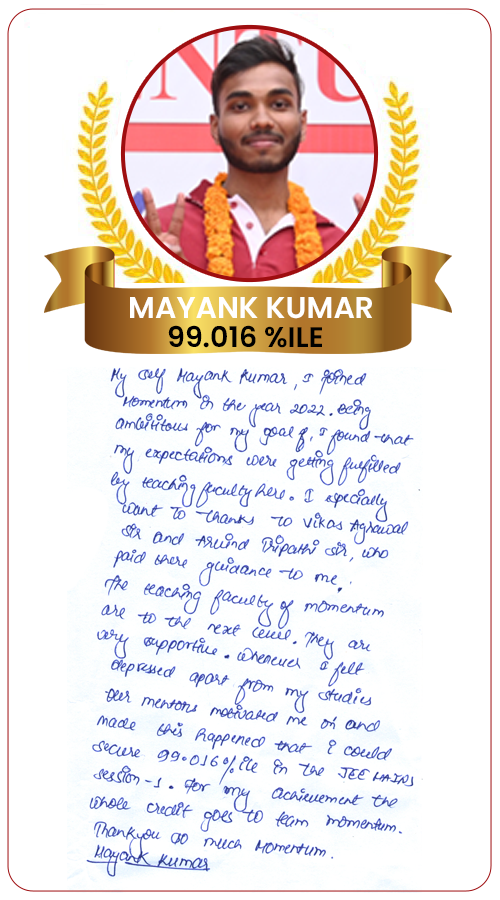 NTU
MAYANK KUMAR
99.016 %ILE
My self Mayank Kumar, I joined
Momentum in the year 2022. Being
ambititous for my goal of, I found that
my expectations were getting fulfilled
by teaching faculty here. I especially
want to thanks to Vikas Agrawal
Sir and Arvind Tripathi Sir, who
paid there guidance to me.
The teaching faculty of momentum
are to the next level. They are
very supportive. Whenever I felt
depressed apart from my studies
our mentors motivated me and
made this happened that i could
secure 99.016%ile in the JEE MAINS
session-1. For my achievement the
whole credit goes to team momentum.
Thankyou so much Momentum.
Mayank Kumar